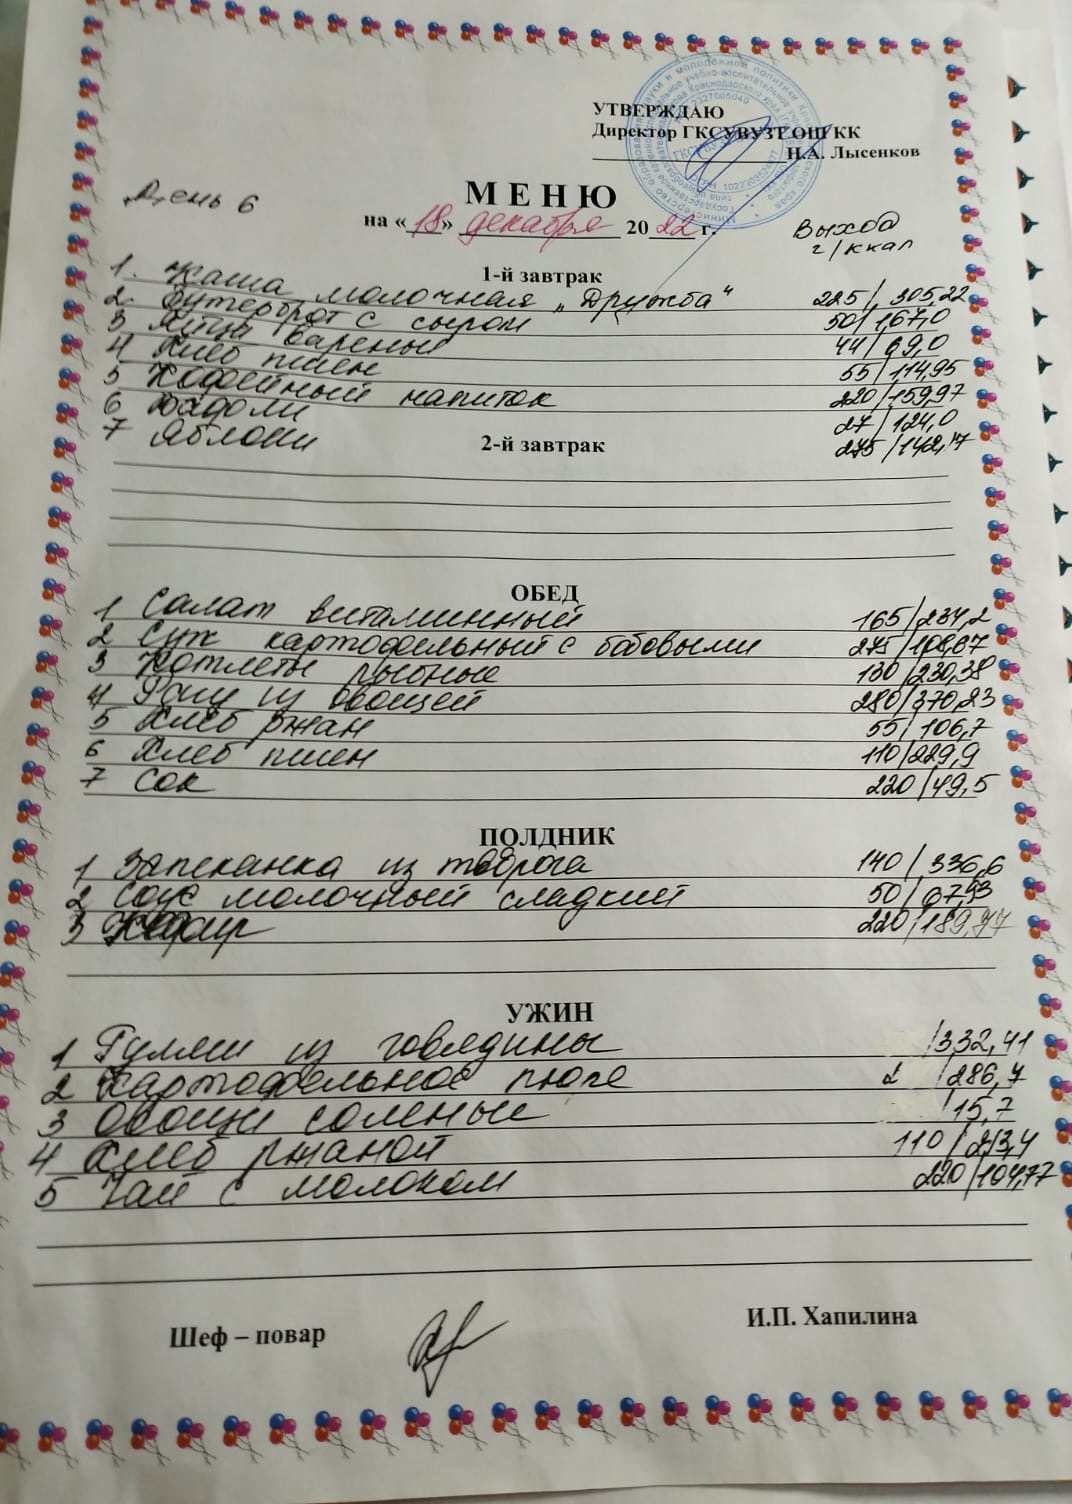 УТВЕРЖДАЮ
Директор ГКСУВУЗТ ОШ КК
Н.А. Лысенков
День 6
МЕНЮ
на «18» декабря 2022 г.
Выход
г/ккал
1-й завтрак
1. Каша молочная „Дружба“ 225/305,22
2. Бутерброт с сыром 50/167,0
3 Яйца вареные 44/69,0
4 Хлеб пшен 55/114,95
5 Кофейный напиток 220/159,97
6 27/124,0
7 Яблоки 275/142,17
2-й завтрак
ОБЕД
1 Салат витаминный 165/234,2
2 Суп картофельный с бобовыми 275/
3 Котлеты рыбные 130/230,38
4 Рагу из овощей 280/370,23
5 Хлеб ржан 55/106,7
6 Хлеб пшен 110/229,9
7 Сок 220/49,5
ПОЛДНИК
1 Запеканка из творога 140/336,6
2 Соус молочный сладкий 50/67,93
3 220/189,77
УЖИН
1 Гуляш из говядины /332,41
2 Картофельное пюре 2 /286,7
3 Овощи соленые /15,7
4 Хлеб ржаной 110/213,4
5 Чай с молоком 220/104,77
Шеф – повар
И.П. Хапилина